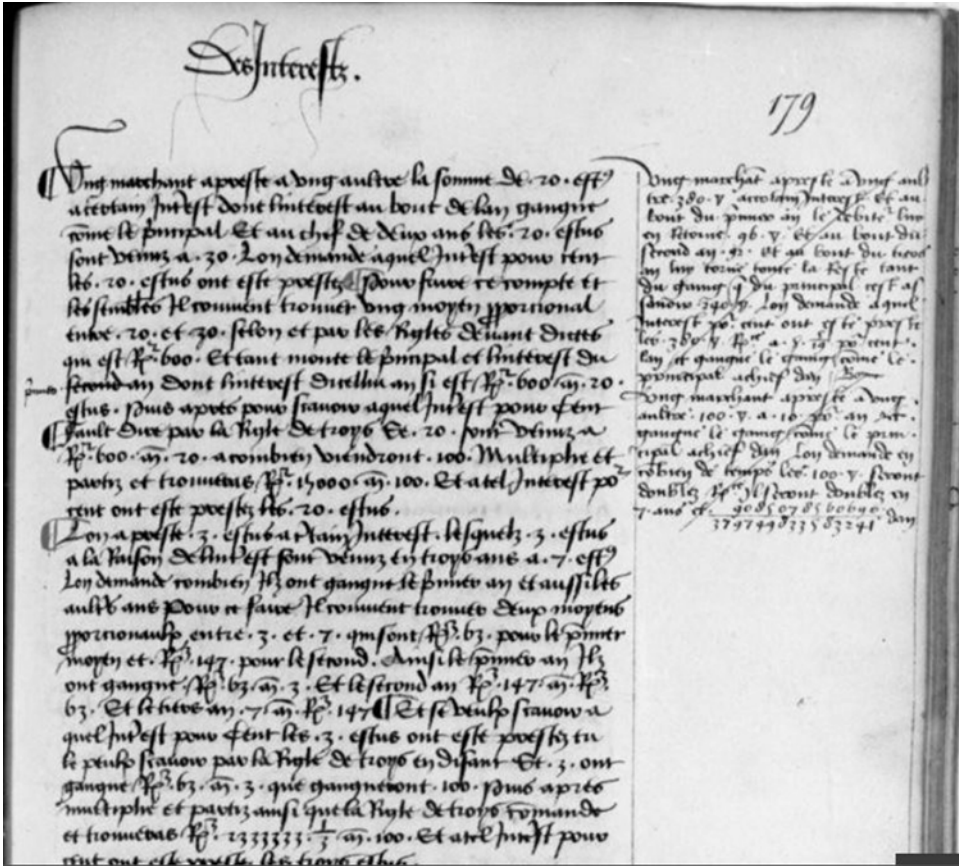 Des Interestz.
179
Ung marchant a preste a ung aultre la somme de .20. estus
a certain Interest dont linterest au bout de lan gangne
cõme le p̃ncipal Et au chief de deux ans les .20. estus
sont venuz a .30. Lon demande a quel Int̃est pour cent
les .20. estus ont este prestez Pour faire ce compte et
les semblẽs Il convient trouver ung moyen pporcional
entre .20. et 30. selon et par les Rigles devant dictes
qui est .R².600. Et tant monte le p̃ncipal et linterest du
second an dont linterest dicelluy an si est .R².600.m̃.20.
estus. Puis apres pour scavoir a quel Int̃est pour Cent
Fault dire par la Rigle de troys Se .20. sont venuz a
R².600.m̃.20. a combien viendront .100. Multiplie et
partiz et trouveras .R².15000.m̃.100. Et a tel Interest po²
cent ont este prestez les .20. estus.
Lon a preste .3. estus a c̃tain Interest. lesquelz .3. estus
a la Raison de lint̃est sont venuz en troys ans a .7. estus
Lon demande combien Ilz ont gangne le p̃mier an et aussi les
aultẽs ans Pour ce faire Il convient trouver deux moyens
pporcionaulx entre .3. et 7. qui sont .R³.63. pour le p̃mier
moyen et .R³.147. pour le second. Ainsi le p̃mier an Ilz
ont gangne .R³.63.m̃.3. Et le second an .R³.147.m̃.R³.
63. Et le tiers an .7.m̃.R³.147 Et se veulx scavoir a
quel Int̃est pour Cent les .3. estus ont este prestez tu
le peulx scavoir par la Rigle de troys en disant Se .3. ont
gangne .R³.63.m̃.3. que gangneront .100. Puis apres
multiplie et partiz ainsi que la Rigle de troys cõmande
et trouveras .R³.2333333.1/3.m̃.100. Et a tel Int̃est pour
cent ont este prestez les troys estus.
Ung marchãt a preste a ung aul
tre .380. a certain Interest Et au
bout du p̃mier an le debite luy
en Retorne .96. Et au bout du
second an .92. Et au bout du tiers
an luy torne toute la Reste tant
du gaing q̃ du principal cest as
savoir Lon demande a quel
Interest po² cent ont este preste
les .380. po² cent.
lan et gangne le gaing cõme le.
principal a chief dan
Ung marchant a preste a ung.
aultre .100. a .10. po² an
gangne le gaing cõme le prin
cipal a chief dan Lon demande en
cõbien de temps les .100. seront
doublez Il seront doublez en
7. ans et dan